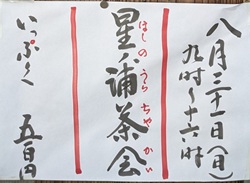 八月三十一日(日)
九時〜十六時
ほしのうらちゃかい
星ノ浦茶会
いっぷく 五百円